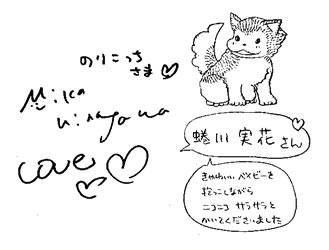 のりこっち
さま
Mika
Ninagawa
love
蜷川 実花さん
きゃわいい ベイビーを
抱っこしながら
ニコニコ サラサラと
かいてくださいました